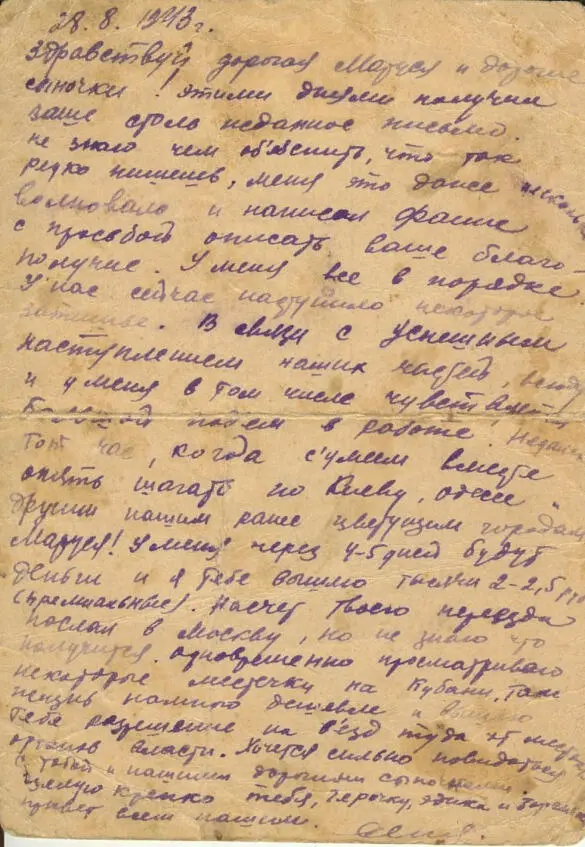 28. 8. 1943 г.
Здравствуй дорогая Маруся и дорогие
сыночки! Этими днями получил
ваше столь неданное письмо.
не знаю чем об'яснить, что так
редко пишешь, меня это даже
волновало и написал Фаине
с просьбой описать ваше благо-
получие. У меня все в порядке
У нас сейчас наступило некоторое
затишье. В связи с успешным
наступлением наших частей, везде
и у меня в том числе чувствуется
большой подъем в работе. Недалек
тот час, когда с'умеем вместе
опять шагать по Киеву, Одессе и
другим нашим ранее цветущим городам
Маруся! У меня через 4-5 дней будут
деньги и я тебе вышлю тысячи 2-2,5 руб
(премиальные). Насчет твоего переезда
послал в Москву, но не знаю что
получится. Одновременно просматриваю
некоторые местечки на Кубани, там
жизнь намного дешевле и вышлю
тебе разрешение на в'езд туда от местных
органов власти. Хочется сильно повидаться
с тобой и нашими дорогими сыночками.
Целую крепко тебя, Герочку, Эдика и
привет всем нашим.